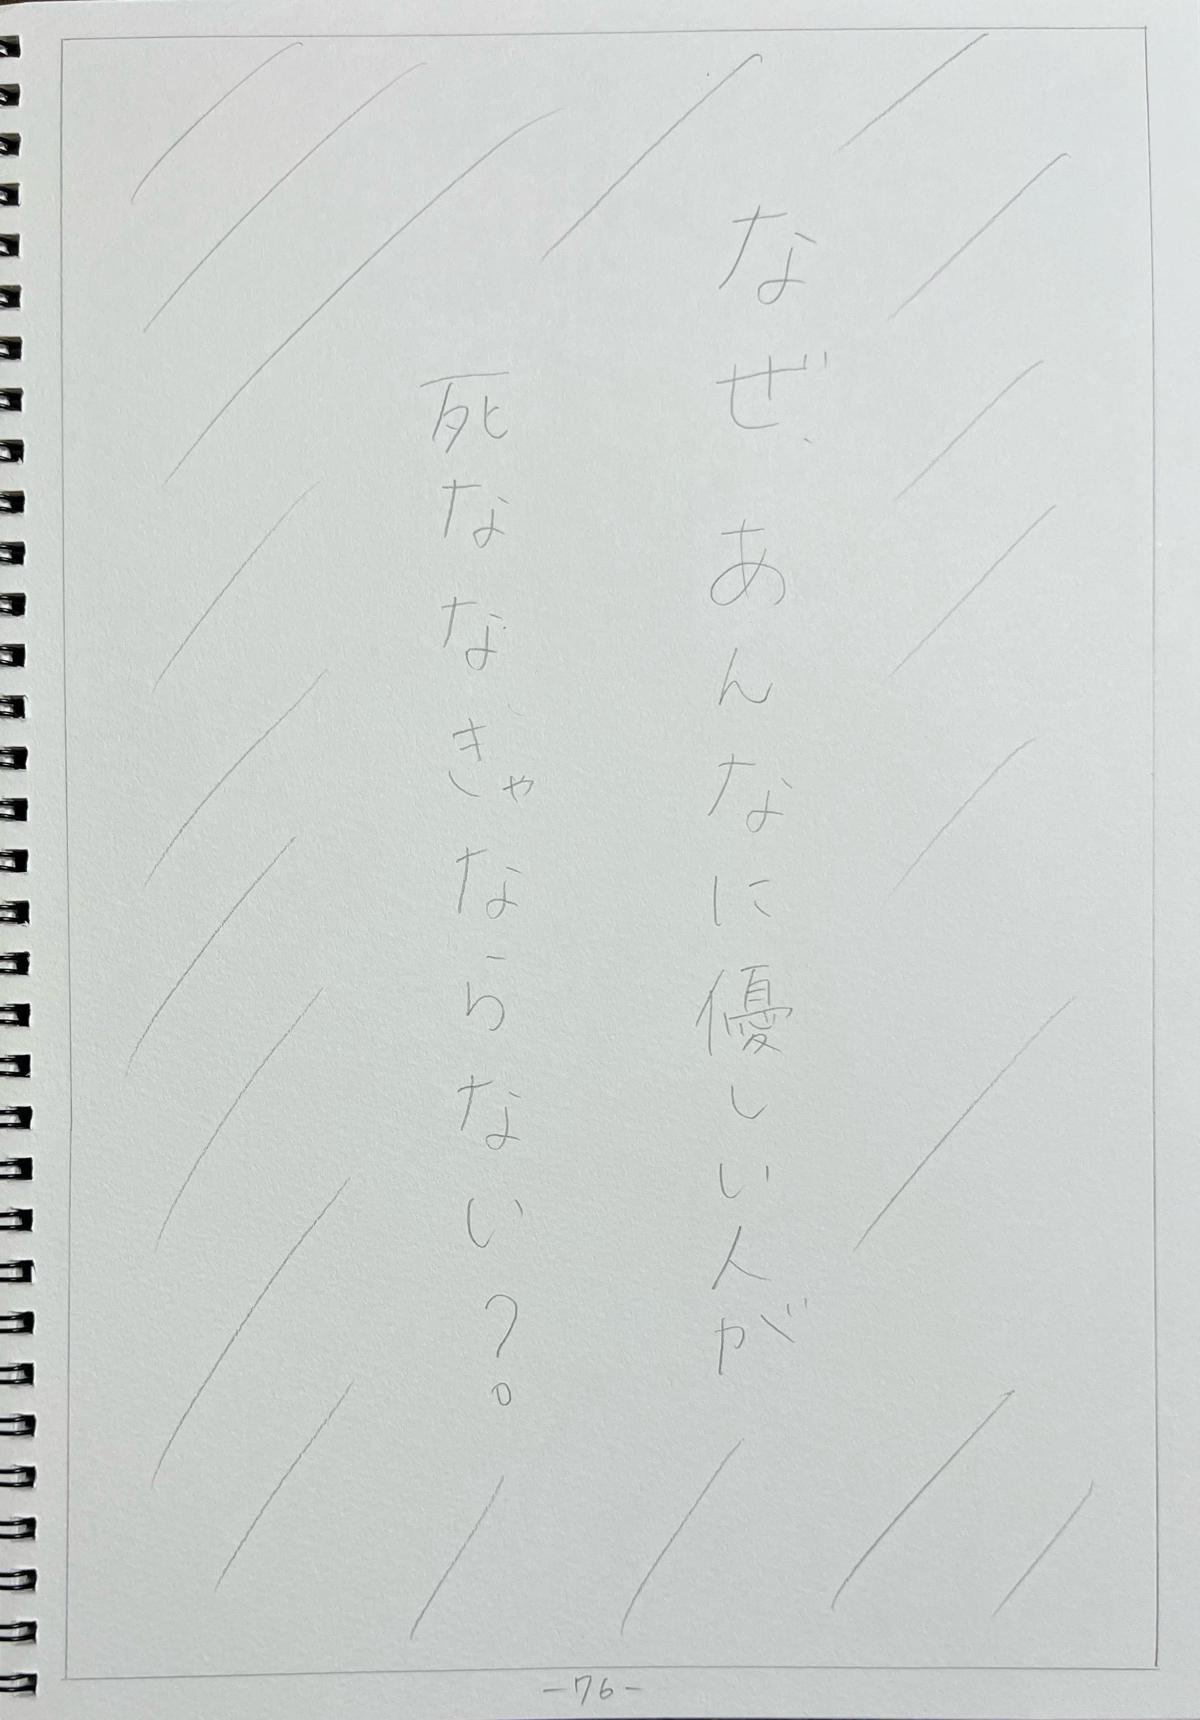 なぜ、あんなに優しい人が
死ななきゃならない？。
-76-